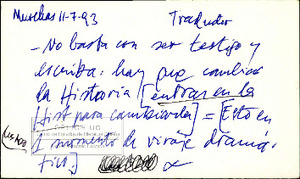 Murcilas 11-7-93 Traductor
- No basta con ser testigo y
escriba: hay que cambiar
la Historia [entrar en la
Hist para cambiarla] = [Esto en
1 momento de viraje dramá-
tico]